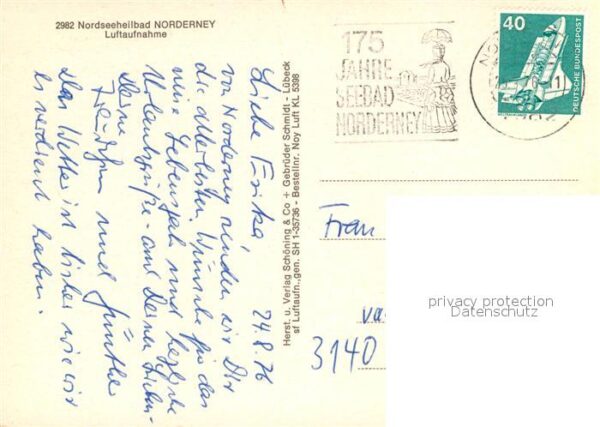 2982 Nordseeheilbad NORDERNEY
Luftaufnahme
175
JAHRE
SEEBAD
NORDERNEY
40
DEUTSCHE BUNDESPOST
Herst. u. Verlag Schöning & Co + Gebrüder Schmidt - Lübeck
sf Luftaufn., gen. SH 1-35736 - Bestellnr. Noy Luft KL 5398
24.8.76
Liebe Erika
von Norderney senden wir Dir
die allerbesten Wünsche für das
neue Lebensjahr und herzliche
Urlaubsgrüße - auch Deinen Lieben -
Deine
und Günther
Das Wetter ist bisher wie wir
es verdient haben.
Frau
3140
privacy protection
Datenschutz